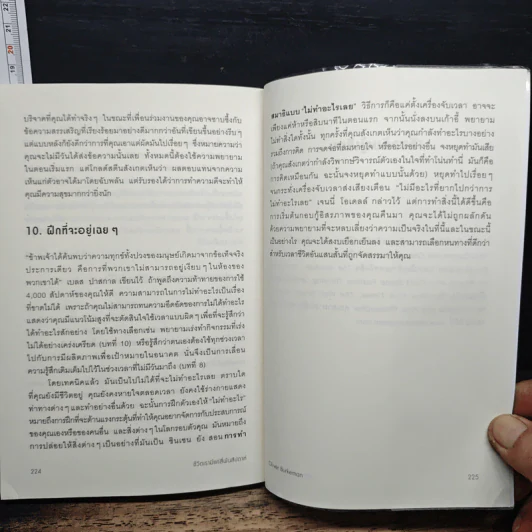 บริจาคที่คุณได้ทำจริงๆ ในขณะที่เพื่อนร่วมงานของคุณอาจซาบซึ้งกับ
ข้อความสรรเสริญที่เรียงร้อยมาอย่างดีมากกว่าอันที่เขียนขึ้นอย่างรีบๆ
แต่แบบหลังก็ยังดีกว่าการที่คุณเอาแต่ผัดผ่อนไปเรื่อยๆ ซึ่งหมายความว่า
คุณจะไม่มีวันได้ส่งข้อความนั้นเลย ทั้งหมดนี้ต้องใช้ความพยายาม
ในตอนเริ่มแรก แต่โกลด์สตีนสังเกตเห็นว่า ผลตอบแทนจากความ
เห็นแก่ตัวอาจได้มาโดยฉับพลัน แต่รับรองได้ว่าการทำความดีจะทำให้
คุณมีความสุขมากกว่ายิ่งนัก
10. ฝึกที่จะอยู่เฉยๆ
"ข้าพเจ้าได้ค้นพบว่าความทุกข์ทั้งปวงของมนุษย์เกิดมาจากข้อเท็จจริง
ประการเดียว คือการที่พวกเขาไม่สามารถอยู่เงียบๆ ในห้องของ
พวกเขาได้" เบลส ปาสกาล เขียนไว้ ถ้าพูดถึงความท้าทายของการใช้
4,000 สัปดาห์ของคุณให้ดี ความสามารถในการไม่ทำอะไรเป็นเรื่อง
ที่ขาดไม่ได้ เพราะถ้าคุณไม่สามารถทนความอึดอัดของการไม่ได้ทำอะไร
แสดงว่าคุณมีแนวโน้มสูงที่จะตัดสินใจใช้เวลาแบบผิดๆ เพื่อที่จะรู้สึกว่า
ได้ทำอะไรสักอย่าง โดยใช้ทางเลือกเช่น พยายามเร่งทำกิจกรรมที่เร่ง
ไม่ได้อย่างเคร่งเครียด (บทที่ 10) หรือรู้สึกว่าตนเองต้องใช้ทุกช่วงเวลา
ไปกับการมีผลิตภาพเพื่อเป้าหมายในอนาคต นั่นจึงเป็นการเลื่อน
ความรู้สึกเติมเต็มไปไว้ในช่วงเวลาที่ไม่มีวันมาถึง (บทที่ 8)
โดยเทคนิคแล้ว มันเป็นไปไม่ได้ที่จะไม่ทำอะไรเลย ตราบใด
ที่คุณยังมีชีวิตอยู่ คุณยังคงหายใจตลอดเวลา ยังคงใช้ร่างกายแสดง
ท่าทางต่างๆ และทำอย่างอื่นด้วย ฉะนั้นการฝึกตัวเองให้ "ไม่ทำอะไร"
หมายถึงการฝึกที่จะต้านแรงกระตุ้นที่ทำให้คุณอยากจัดการกับประสบการณ์
ของคุณเองหรือของคนอื่น และสิ่งต่างๆ ในโลกรอบตัวคุณ มันหมายถึง
การปล่อยให้สิ่งต่างๆ เป็นอย่างที่มันเป็น ชินเซน ยัง สอน การทำ
224
สมาธิแบบ "ไม่ทำอะไรเลย" วิธีการก็คือแค่ตั้งเครื่องจับเวลา อาจจะ
เพียงแค่ห้าหรือสิบนาทีในตอนแรก จากนั้นนั่งลงบนเก้าอี้ พยายาม
ไม่ทำสิ่งใดทั้งนั้น ทุกครั้งที่คุณสังเกตเห็นว่าคุณกำลังทำอะไรบางอย่าง
รวมถึงการคิด การจดจ่อที่ลมหายใจ หรืออะไรอย่างอื่น จงหยุดทำมันเสีย
(ถ้าคุณสังเกตว่ากำลังวิพากษ์วิจารณ์ตัวเองในใจที่ทำโน่นทำนี่ มันก็คือ
การคิดเหมือนกัน ฉะนั้นจงหยุดทำแบบนั้นด้วย) หยุดทำไปเรื่อยๆ
จนกระทั่งเครื่องจับเวลาส่งเสียงเตือน "ไม่มีอะไรที่ยากไปกว่าการ
ไม่ทำอะไรเลย" เจนนี่ โอเดลล์ กล่าวไว้ แต่การทำสิ่งนี้ได้ดีขึ้นคือ
การเริ่มต้นกอบกู้อิสรภาพของคุณคืนมา คุณจะได้ไม่ถูกผลักดัน
ด้วยความพยายามที่จะหลบเลี่ยงว่าความเป็นจริงในที่นี้และในขณะนี้
เป็นอย่างไร คุณจะได้สงบเยือกเย็นลง และสามารถเลือกหนทางที่ดีกว่า
สำหรับเวลาชีวิตอันแสนสั้นที่ถูกจัดสรรมาให้คุณ
Oliver Burkeman
225